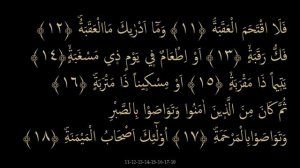 فَلَا اقْتَحَمَ الْعَقَبَةَ ﴿١١﴾ وَمَا أَدْرٰيكَ مَا الْعَقَبَةُ ﴿١٢﴾
فَكُّ رَقَبَةٍ ﴿١٣﴾ أَوْ إِطْعَامٌ فِي يَوْمٍ ذِي مَسْغَبَةٍ ﴿١٤﴾
يَتِيمًا ذَا مَقْرَبَةٍ ﴿١٥﴾ أَوْ مِسْكِينًا ذَا مَتْرَبَةٍ ﴿١٦﴾
ثُمَّ كَانَ مِنَ الَّذِينَ آمَنُوا وَتَوَاصَوْا بِالصَّبْرِ
وَتَوَاصَوْا بِالْمَرْحَمَةِ ﴿١٧﴾ أُولٰٓئِكَ أَصْحَابُ الْمَيْمَنَةِ ﴿١٨﴾
11-12-13-14-15-16-17-18